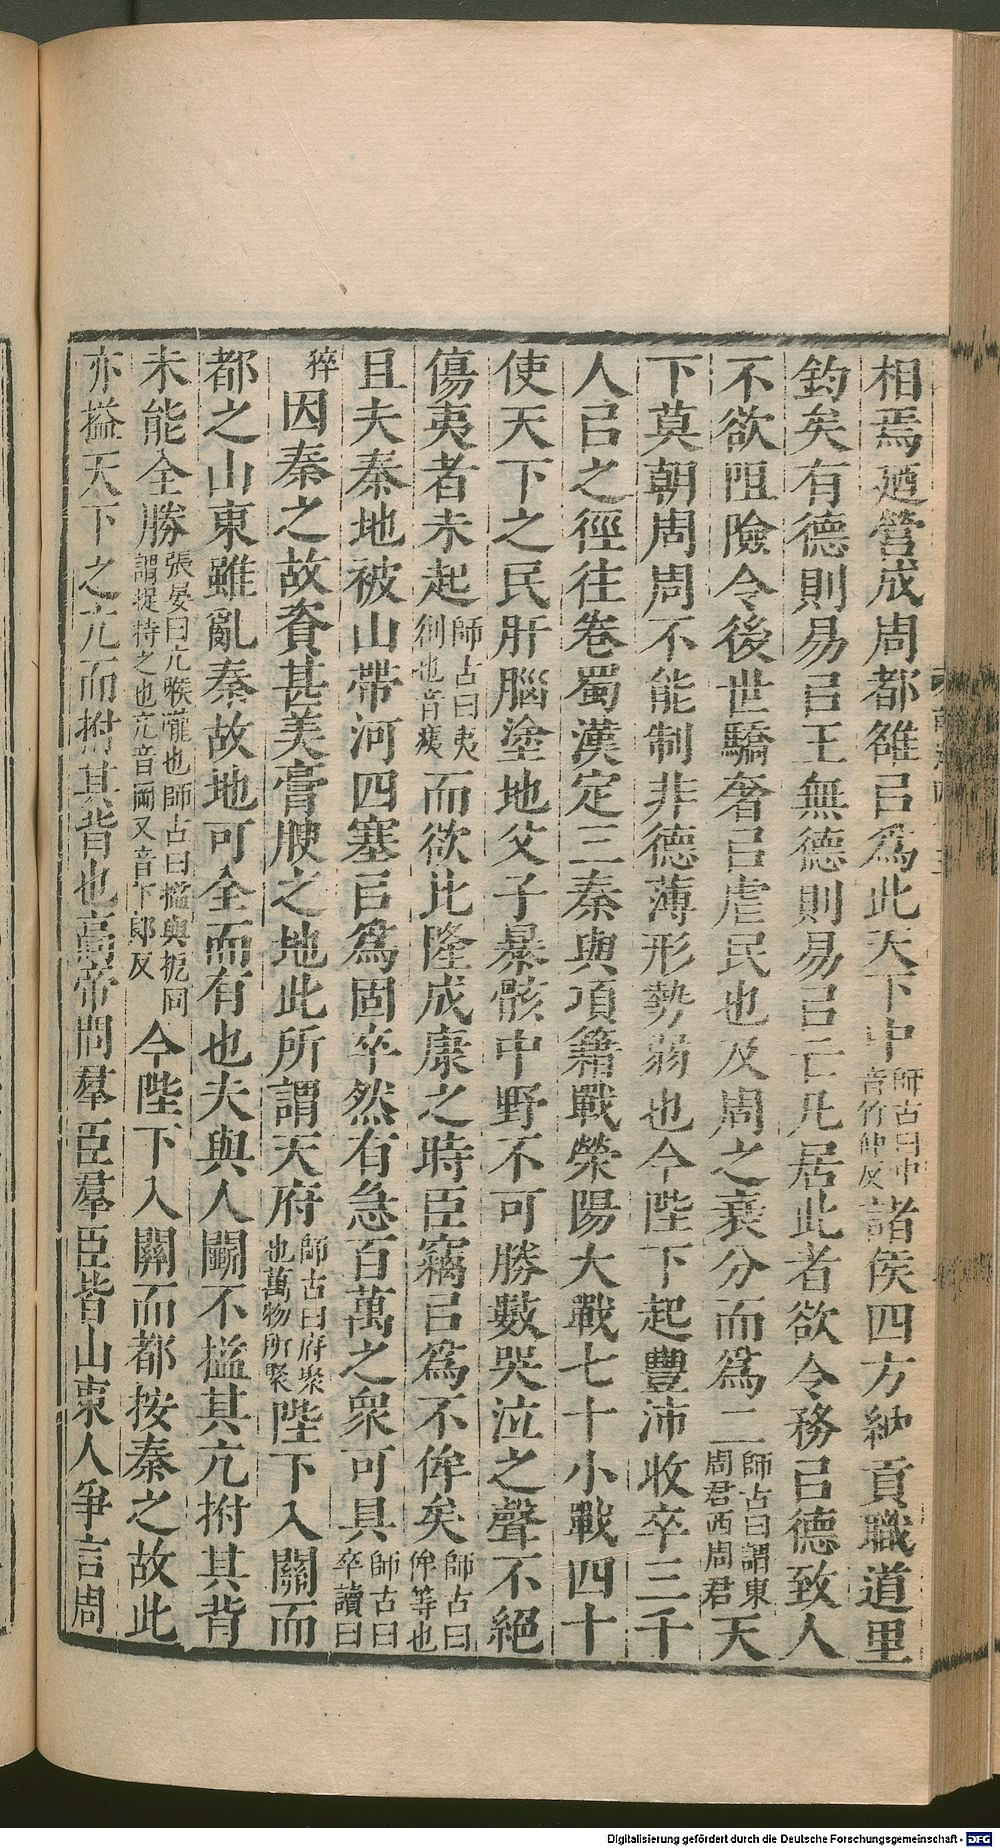 相焉廼營成周都雒㠯爲此天下中師古曰中音竹仲反諸侯四方納貢職道里
鈞矣有德則易㠯王無德則易㠯亡凡居此者欲令務㠯德致人
不欲阻險令後世驕奢㠯虐民也及周之衰分而爲二師古曰謂東周君西周君天
下莫朝周周不能制非德薄形勢弱也今陛下起豐沛收卒三千
人㠯之徑往卷蜀漢定三秦與項籍戰滎陽大戰七十小戰四十
使天下之民肝腦塗地父子暴骸中野不可勝數哭泣之聲不絕
傷夷者未起師古曰夷創也音痍而欲比隆成康之時臣竊㠯爲不侔矣師古曰侔等也
且夫秦地被山帶河四塞㠯爲固卒然有急百萬之衆可具師古曰卒讀曰
猝因秦之故資甚美膏腴之地此所謂天府師古曰府聚也萬物所聚陛下入關而
都之山東雖亂秦故地可全而有也夫與人鬬不搤其亢拊其背
未能全勝張晏曰亢喉嚨也師古曰搤與扼同謂捉持之也亢音岡又音下郎反今陛下入關而都按秦之故此
亦搤天下之亢而拊其背也高帝問羣臣羣臣皆山東人爭言周
Digitalisierung gefördert durch die Deutsche Forschungsgemeinschaft - DFG